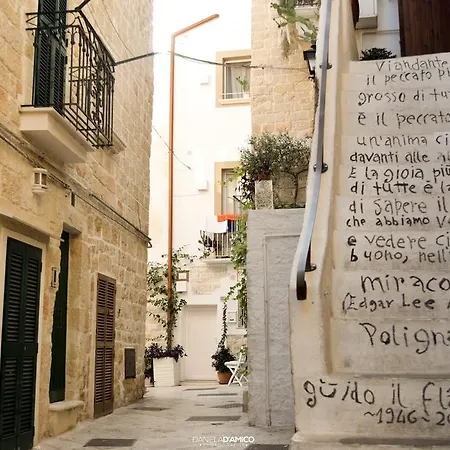 Viandante
il peccato più
grosso di tut
è il peccato
un'anima ci
davanti alle a
E la gioia più
di tutte è la
di sapere il
che abbiamo v
e vedere ci
buono, nell'
miraco
(Edgar Lee
Poligna
guido il fl
~1946~20
DANIELA D'AMICO